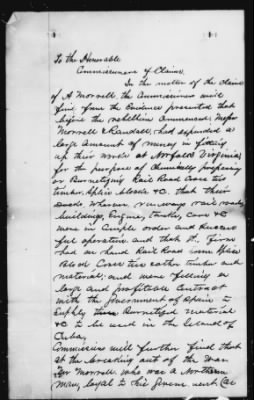 To the Honorable
Commissioners of Claims.
In the matter of the claim
of A Morrell, the Commissioners will
find from the Evidence presented that
before the rebellion Commenced, Messrs
Morrell & Randall, had expended a
large amount of money in fitting
up their works at Norfolk Virginia,
for the purpose of chemically preparing
or Burnetizing Rail Road cross ties
timber, splice blocks &c. that their
wharves, railways
buildings, Engine, tanks, cars &c
were in complete order and successful
operation and that the firm
had on hand Rail Road iron Splice
Block Cross ties other timber and
material; and were filling a
large and profitable contract
with the Government of Spain to
supply them Burnetized material
&c to be used in the Island of
Cuba.
Commissioners will further find that
at the breaking out of the War
Mr Morrell who was a Northern
Man, loyal to his government